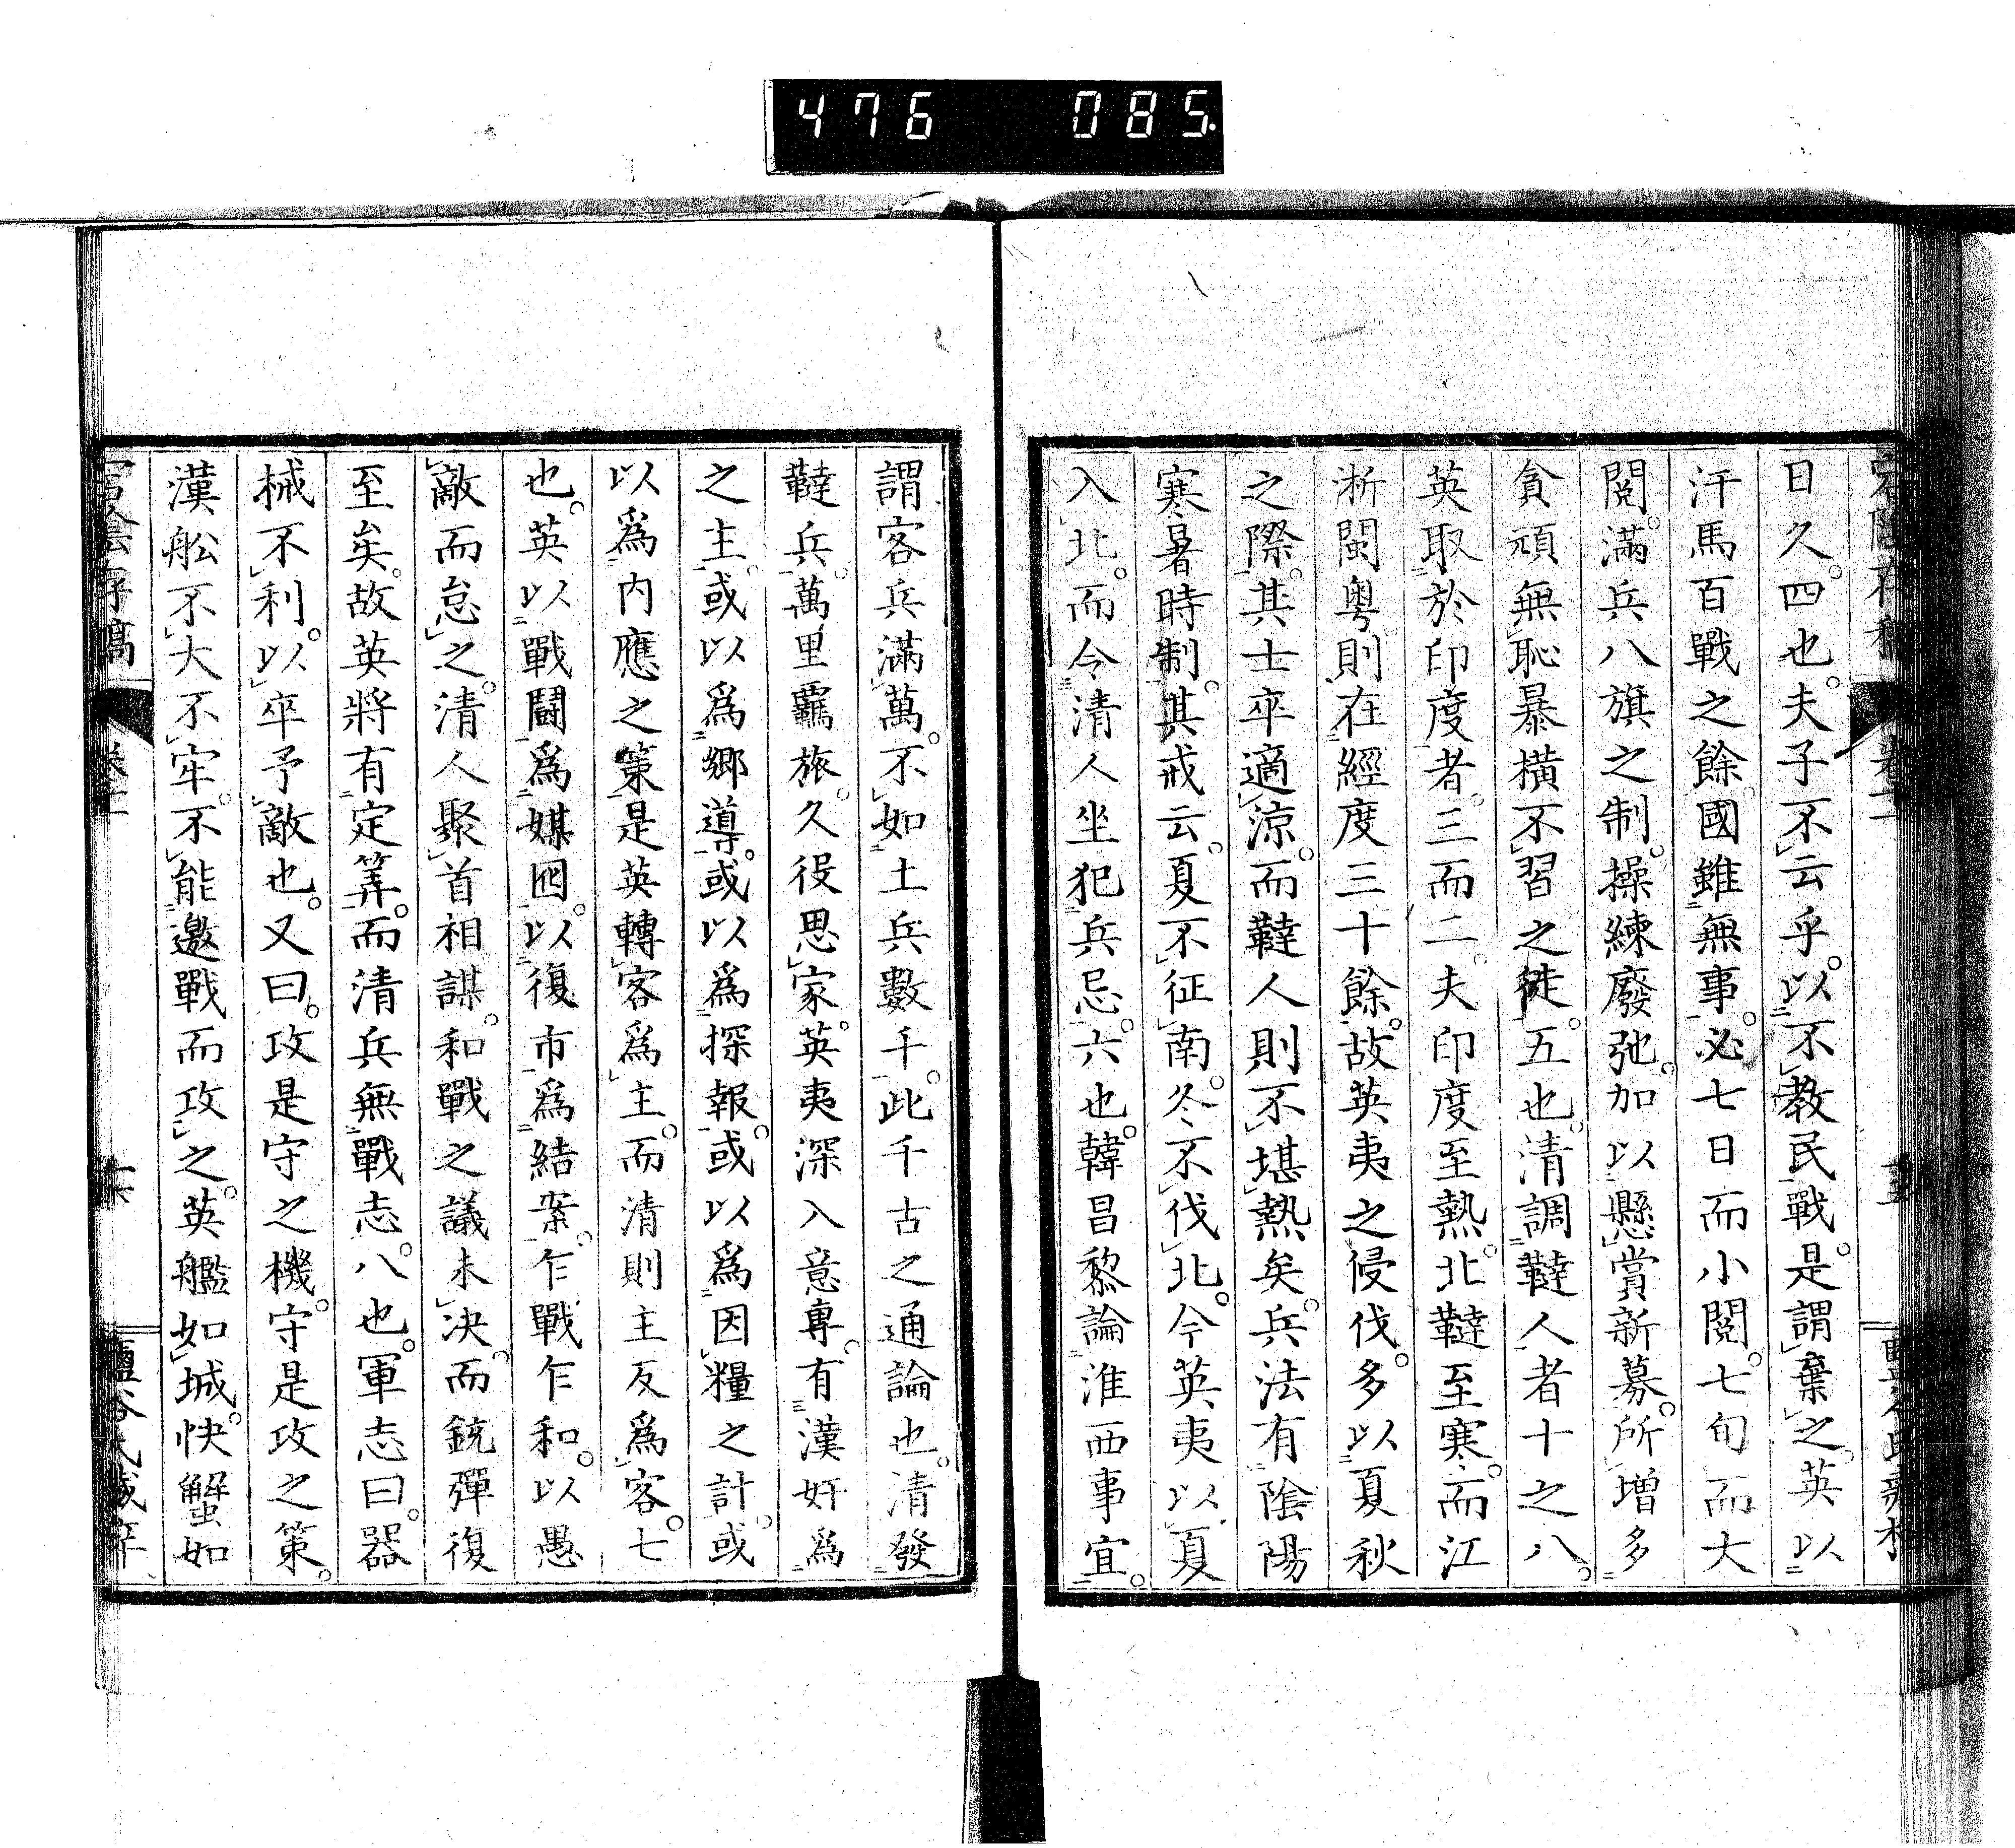 476 085
日久。四也。夫子不云乎。以不教民戰。是謂棄之。英以
汗馬百戰之餘。國雖無事。必七日而小閱。七旬而大
閱。滿兵八旗之制。操練廢弛。加以懸賞新募。所增多
貪頑無恥暴橫不習之徒。五也。清調韃人者十之八。
英取於印度者。三而二。夫印度至熱。北韃至寒。而江
淅閩粤則在經度三十餘。故英夷之侵伐。多以夏秋
之際。其士卒適涼。而韃人則不堪熱矣。兵法有陰陽
寒暑時制。其戒云。夏不征南。冬不伐北。今英夷以夏
入北。而令清人坐犯兵忌。六也。韓昌黎論淮西事宜。
謂客兵滿萬。不如土兵數千。此千古之通論也。清發
韃兵。萬里羈旅。久役思家。英夷深入意專。有漢奸爲
之主。或以爲鄉導。或以爲探報。或以爲因糧之計。或
以爲内應之策。是英轉客爲主。而清則主反爲客。七
也。英以戰鬪爲媒囮。以復市爲結案。乍戰乍和。以愚
敵而怠之。清人聚首相謀。和戰之議未決。而銃彈復
至矣。故英將有定筭。而清兵無戰志。八也。軍志曰。器
械不利。以卒予敵也。又曰。攻是守之機。守是攻之策。
漢舩不大不牢。不能邀戰而攻之。英艦如城。快蟹如
宕陰存稿 卷十